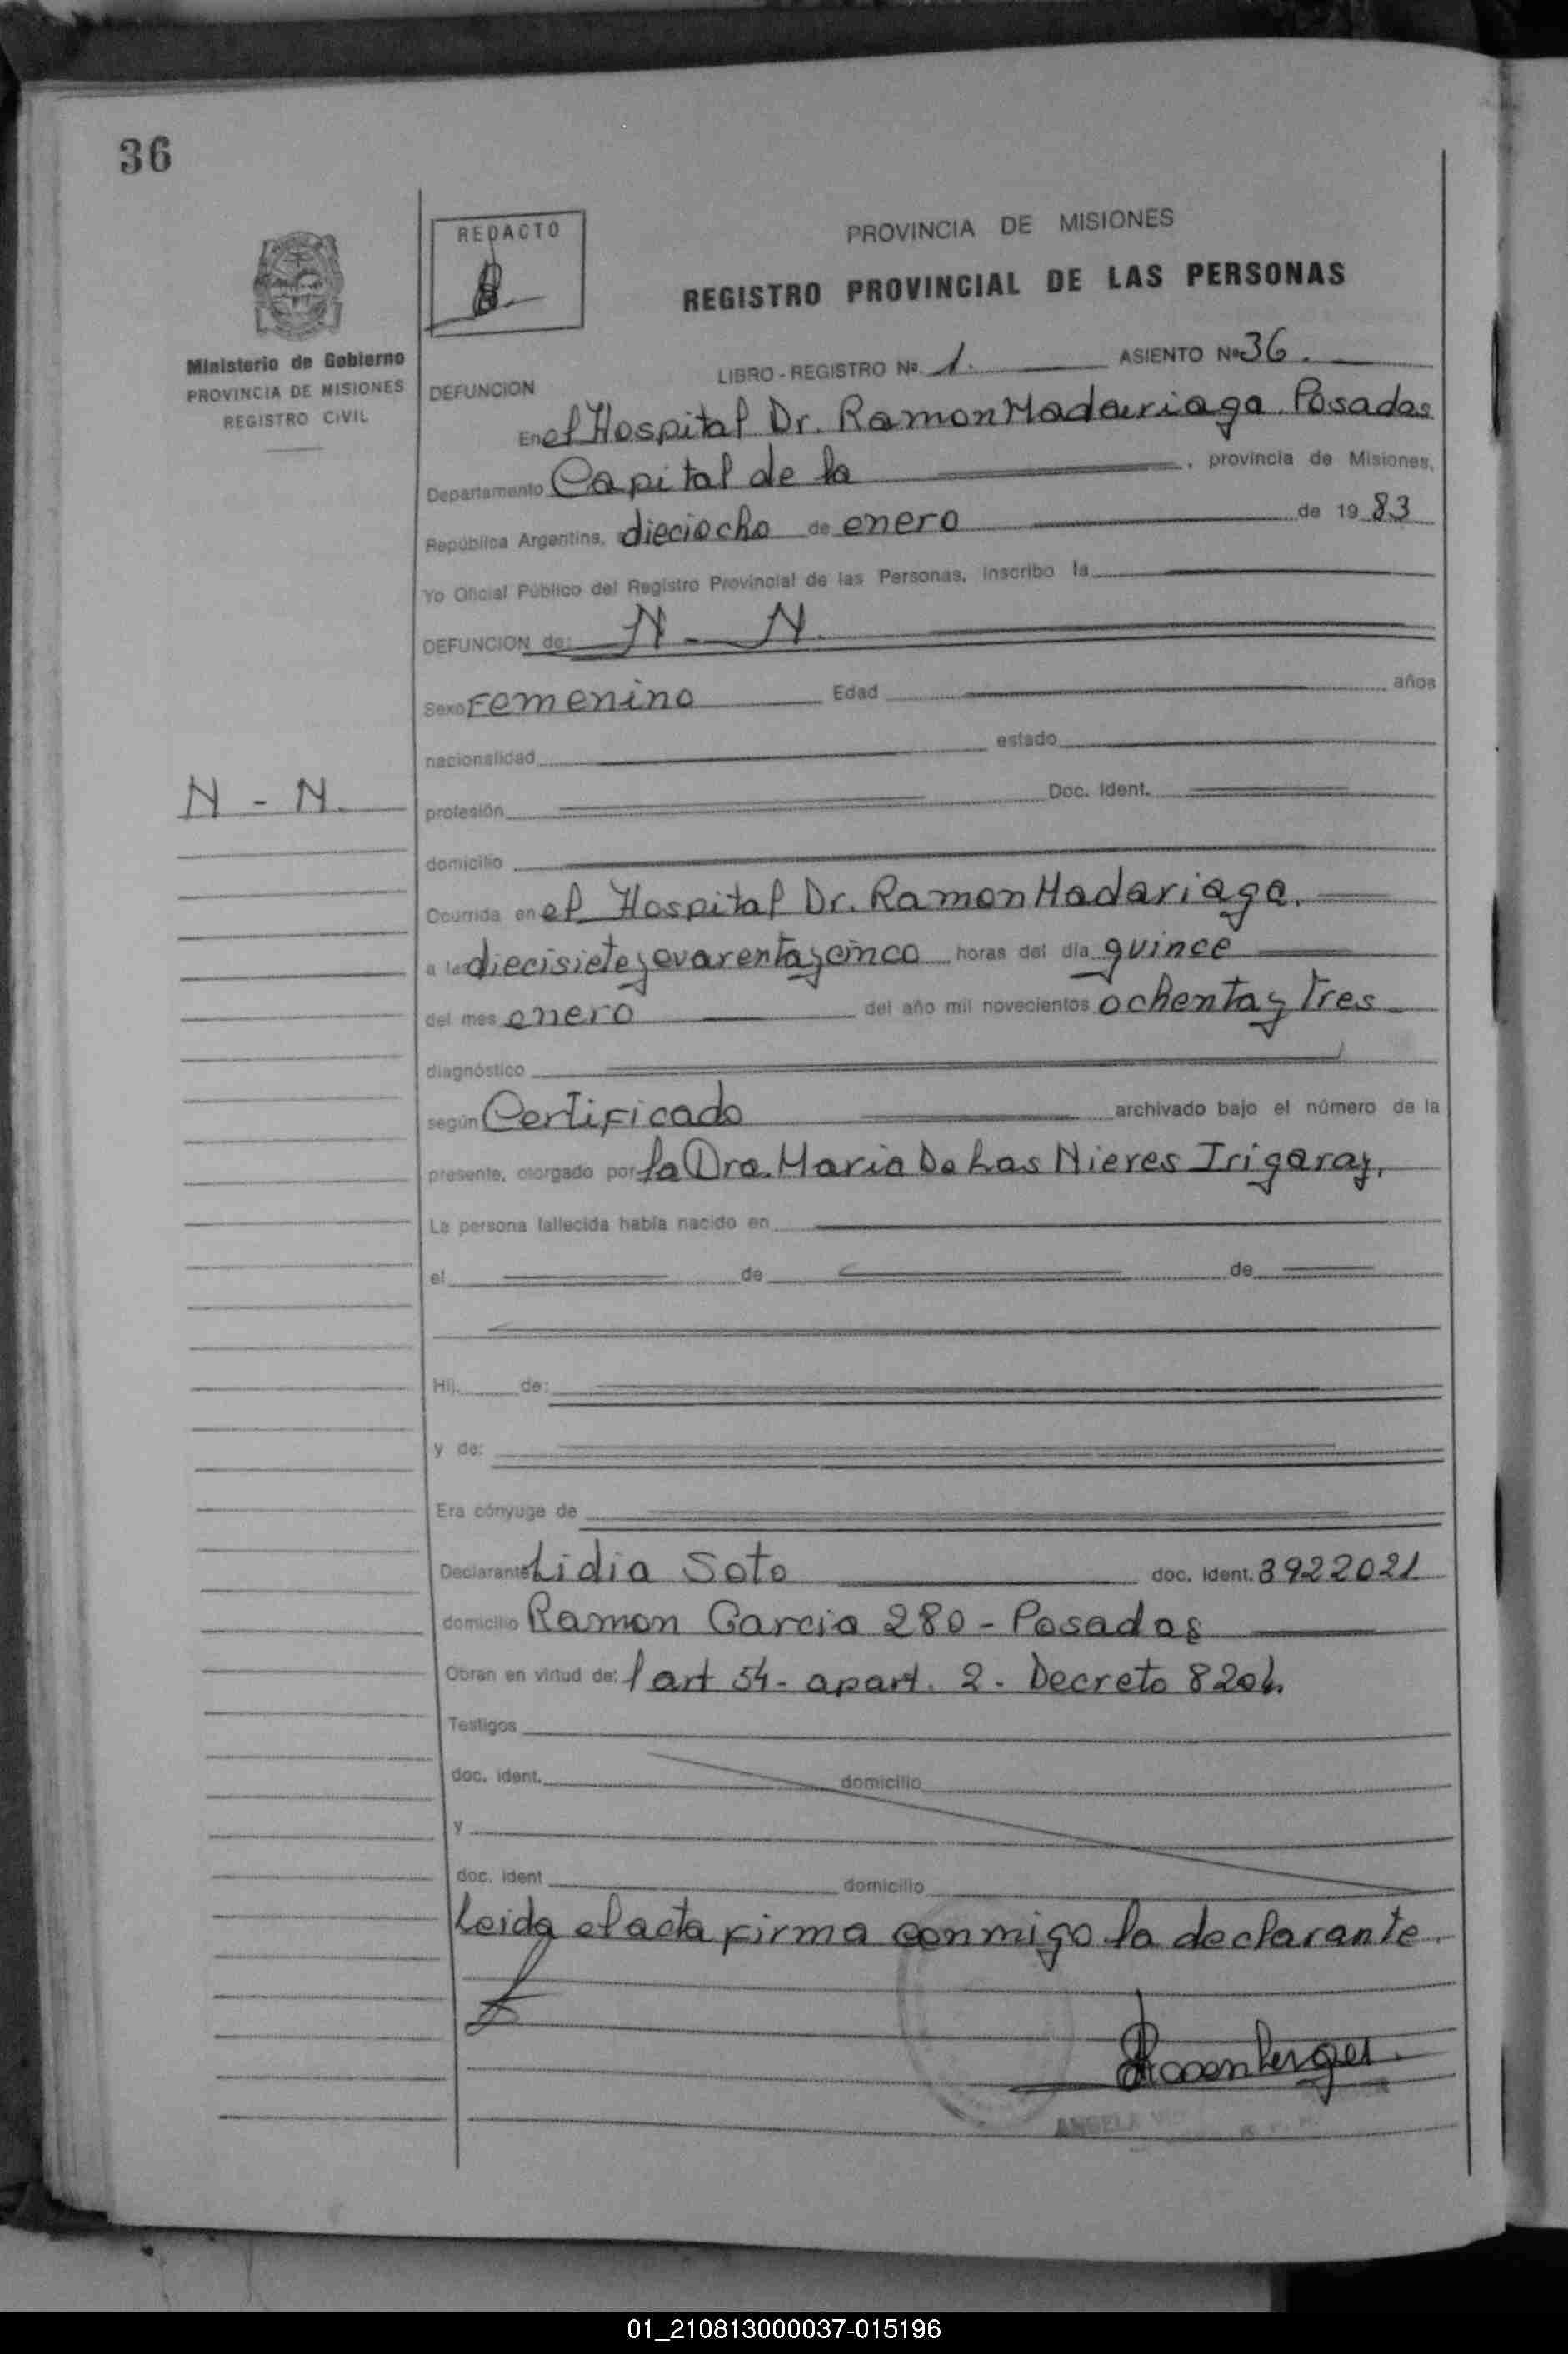 36
REDACTO
PROVINCIA DE MISIONES
REGISTRO PROVINCIAL DE LAS PERSONAS
Ministerio de Gobierno
PROVINCIA DE MISIONES
REGISTRO CIVIL
LIBRO - REGISTRO Nº. 1. ASIENTO Nº 36.
DEFUNCION
En el Hospital Dr. Ramon Madariaga. Posadas
Departamento Capital de la , provincia de Misiones,
República Argentina, dieciocho de enero de 19 83
Yo Oficial Público del Registro Provincial de las Personas, inscribo la
DEFUNCION de: N - N.
Sexo Femenino Edad años
nacionalidad estado
N - N.
profesión Doc. Ident.
domicilio
Ocurrida en el Hospital Dr. Ramon Madariaga.
a las diecisiete y cuarenta y cinco horas del día quince
del mes enero del año mil novecientos ochenta y tres
diagnóstico
según Certificado archivado bajo el número de la
presente, otorgado por la Dra. Maria De Las Nieves Irigaray.
La persona fallecida había nacido en
el de de
Hij. de:
y de:
Era cónyuge de
Declarante Lidia Soto doc. ident. 3922021
domicilio Ramon Garcia 280 - Posadas
Obran en virtud de: l art 54 - apart. 2 - Decreto 8204.
Testigos
doc. ident. domicilio
y
doc. ident domicilio
Leida el acta firma conmigo la declarante.
ANGELA
01_210813000037-015196